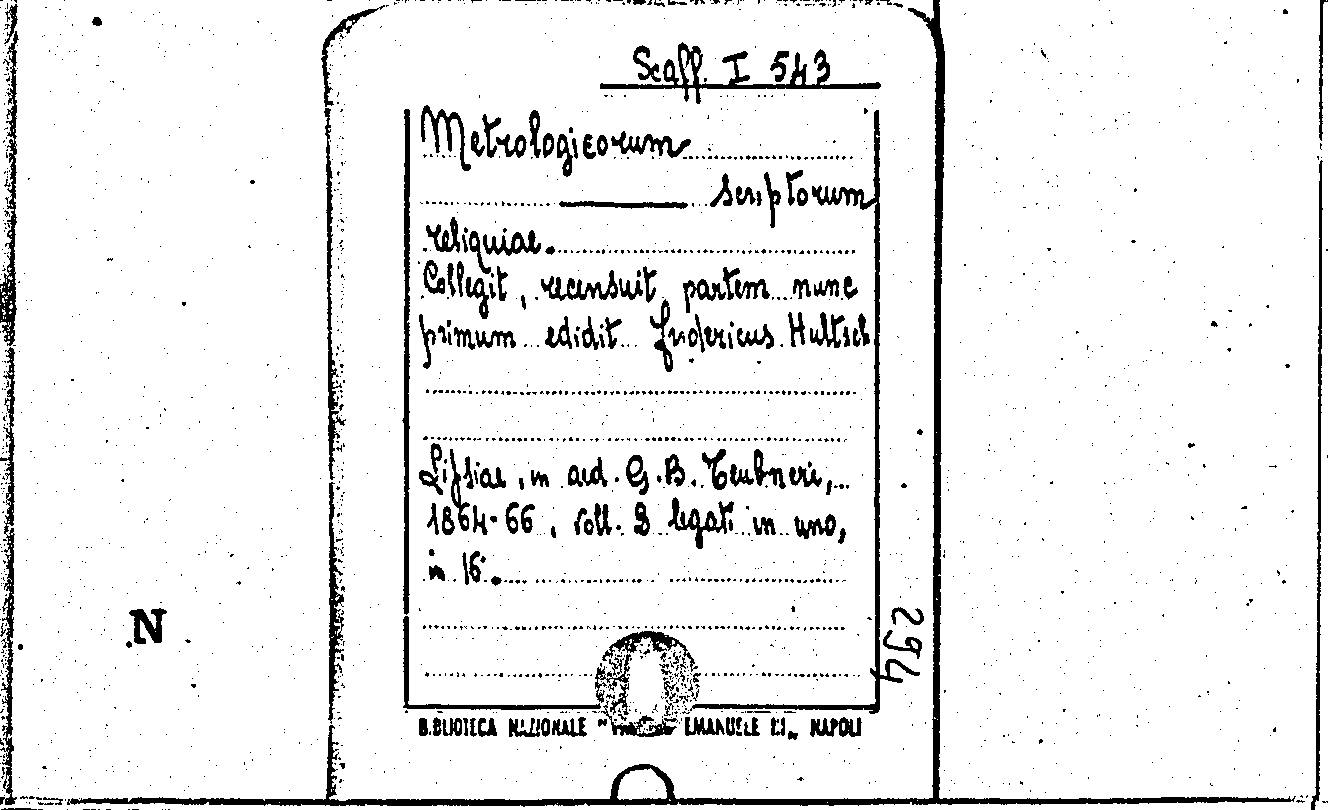 Scaff. I 543
Metrologicorum
scriptorum
reliquiae.
Collegit, recensuit, partem nunc
primum edidit Fridericus Hultsch
Lipsiae, in aed. G. B. Teubneri,
1864-66, voll. 2 legati in uno,
in 16°.
N
294
BIBLIOTECA NAZIONALE " EMANUELE III„ NAPOLI